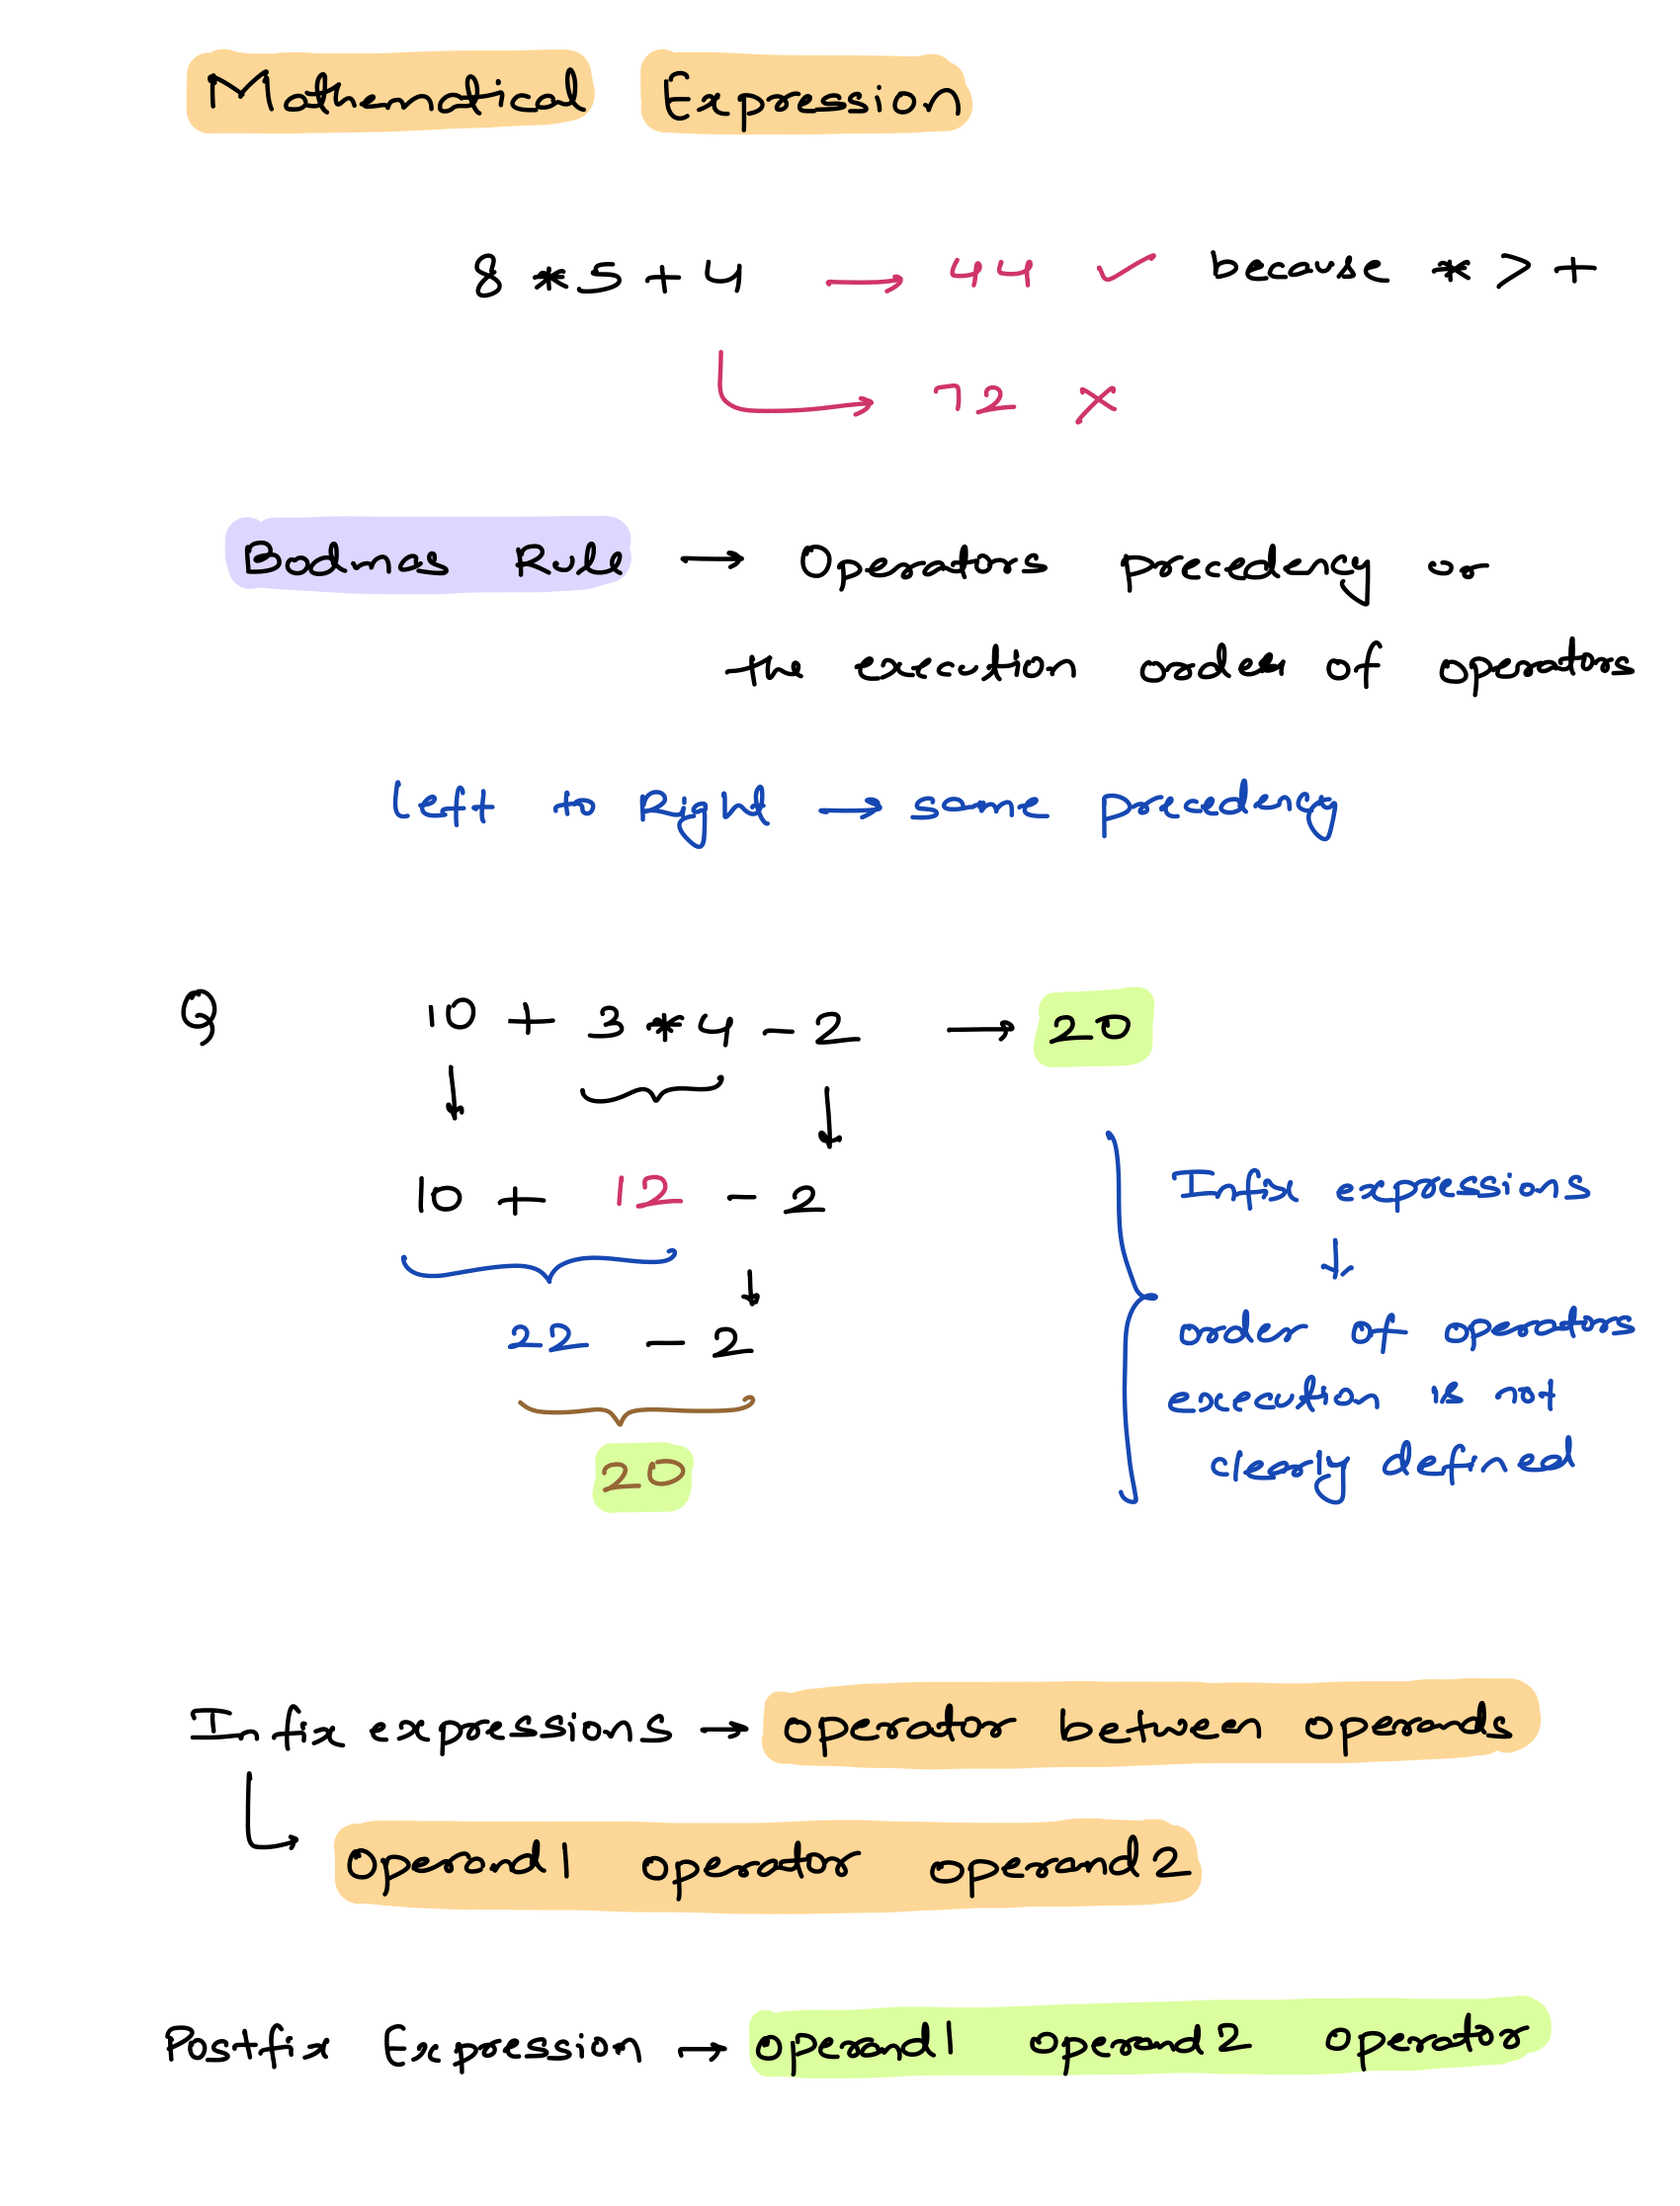 Mathematical Expression
8 * 5 + 4 → 44 ✓ because * > +
→ 72 ×
Bodmas Rule → Operators precedency or
the execution order of operators
left to Right → same precedency
Q 10 + 3 * 4 - 2 → 20
10 + 12 - 2
22 - 2
20
Infix expressions
↓
order of operators
execution is not
clearly defined
Infix expressions → operator between operands
↳ operand1 operator operand2
Postfix Expression → operand1 operand2 operator